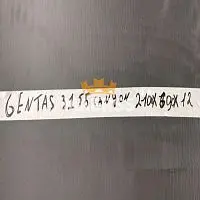 GENTAS 3155 CANYON 210X69X12